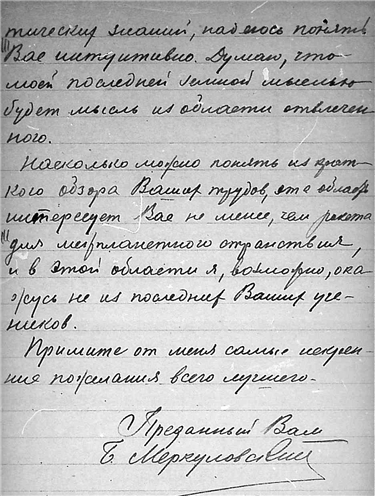 тических знаний, надеюсь понять
Вас интуитивно. Думаю, что
моей последней земной мыслью
будет мысль из области отвлечен
ного.
Насколько можно понять из крат
кого обзора Ваших трудов, эта область
интересует Вас не менее, чем ракета
для межпланетного странствия,
и в этой области я, возможно, ока
жусь не из последних Ваших уче-
ников.
Примите от меня самые искрен
ние пожелания всего лучшего.
Преданный Вам
Б. Меркуловский